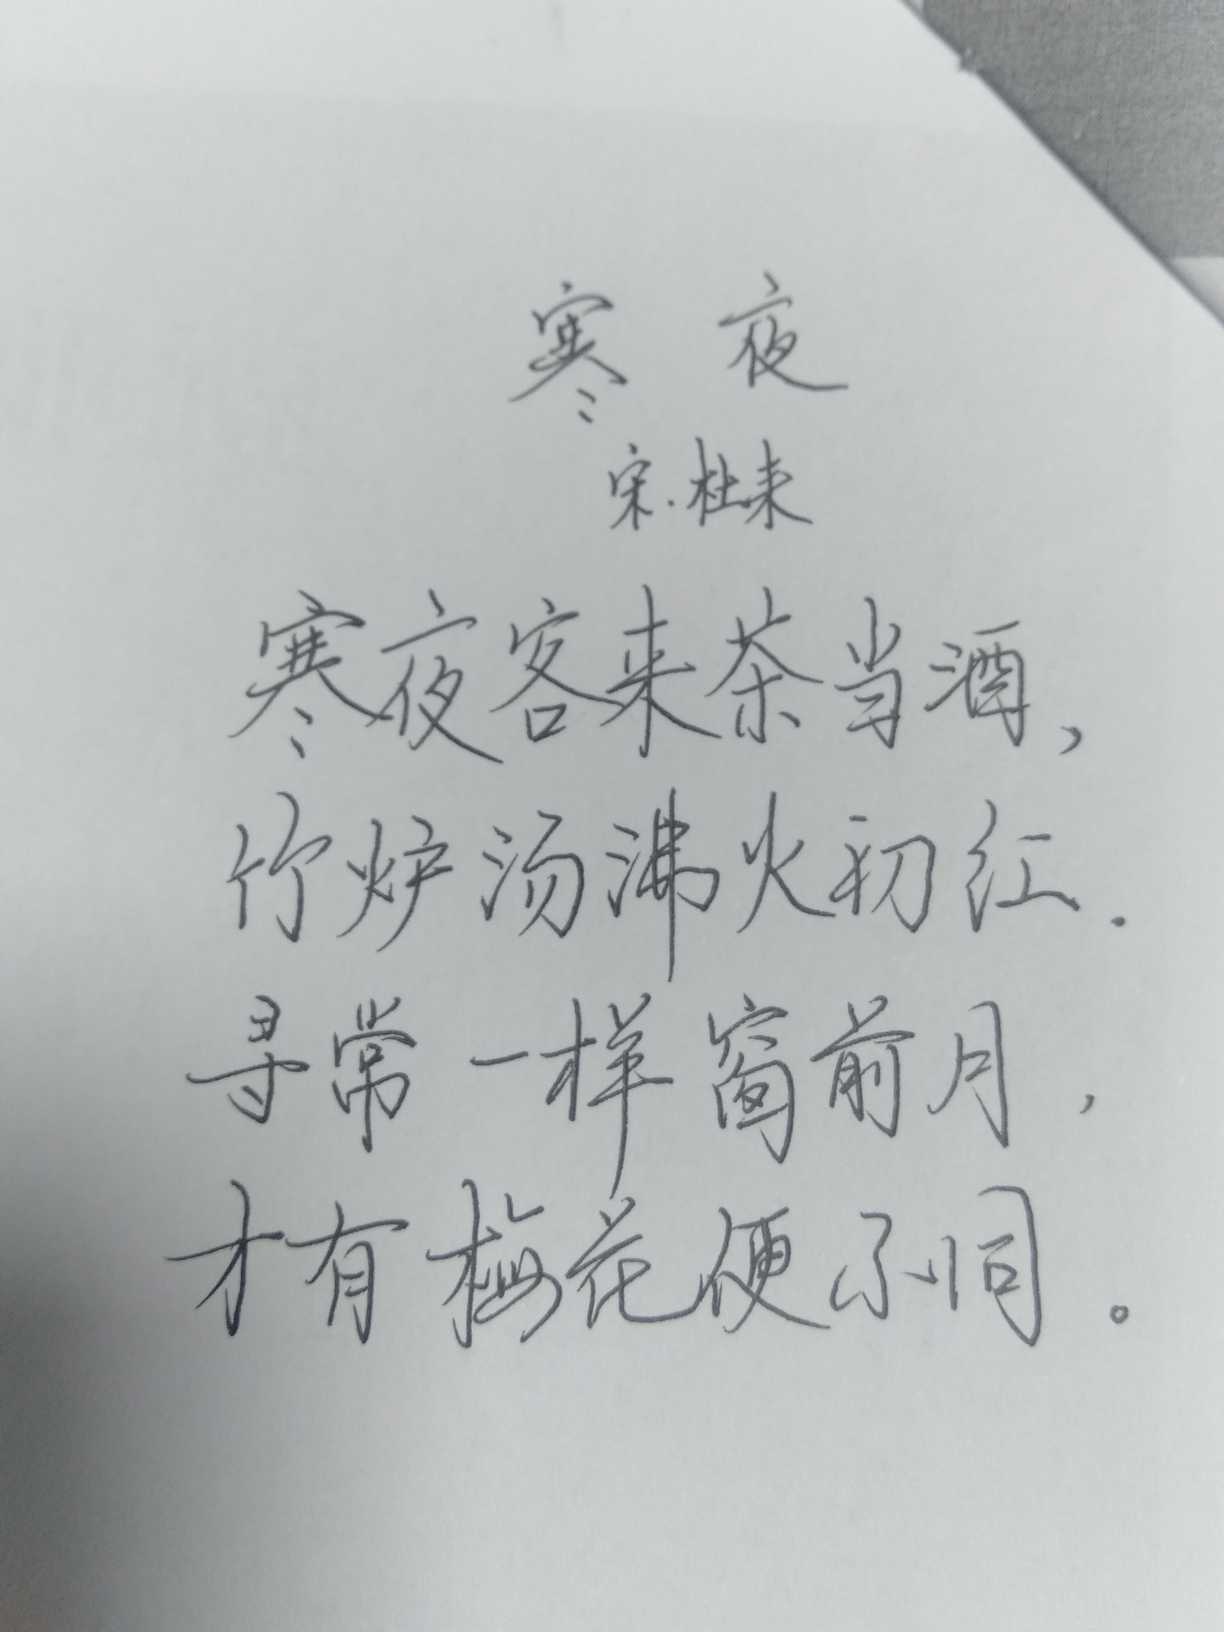 寒夜
宋.杜耒
寒夜客来茶当酒,
竹炉汤沸火初红.
寻常一样窗前月,
才有梅花便不同。